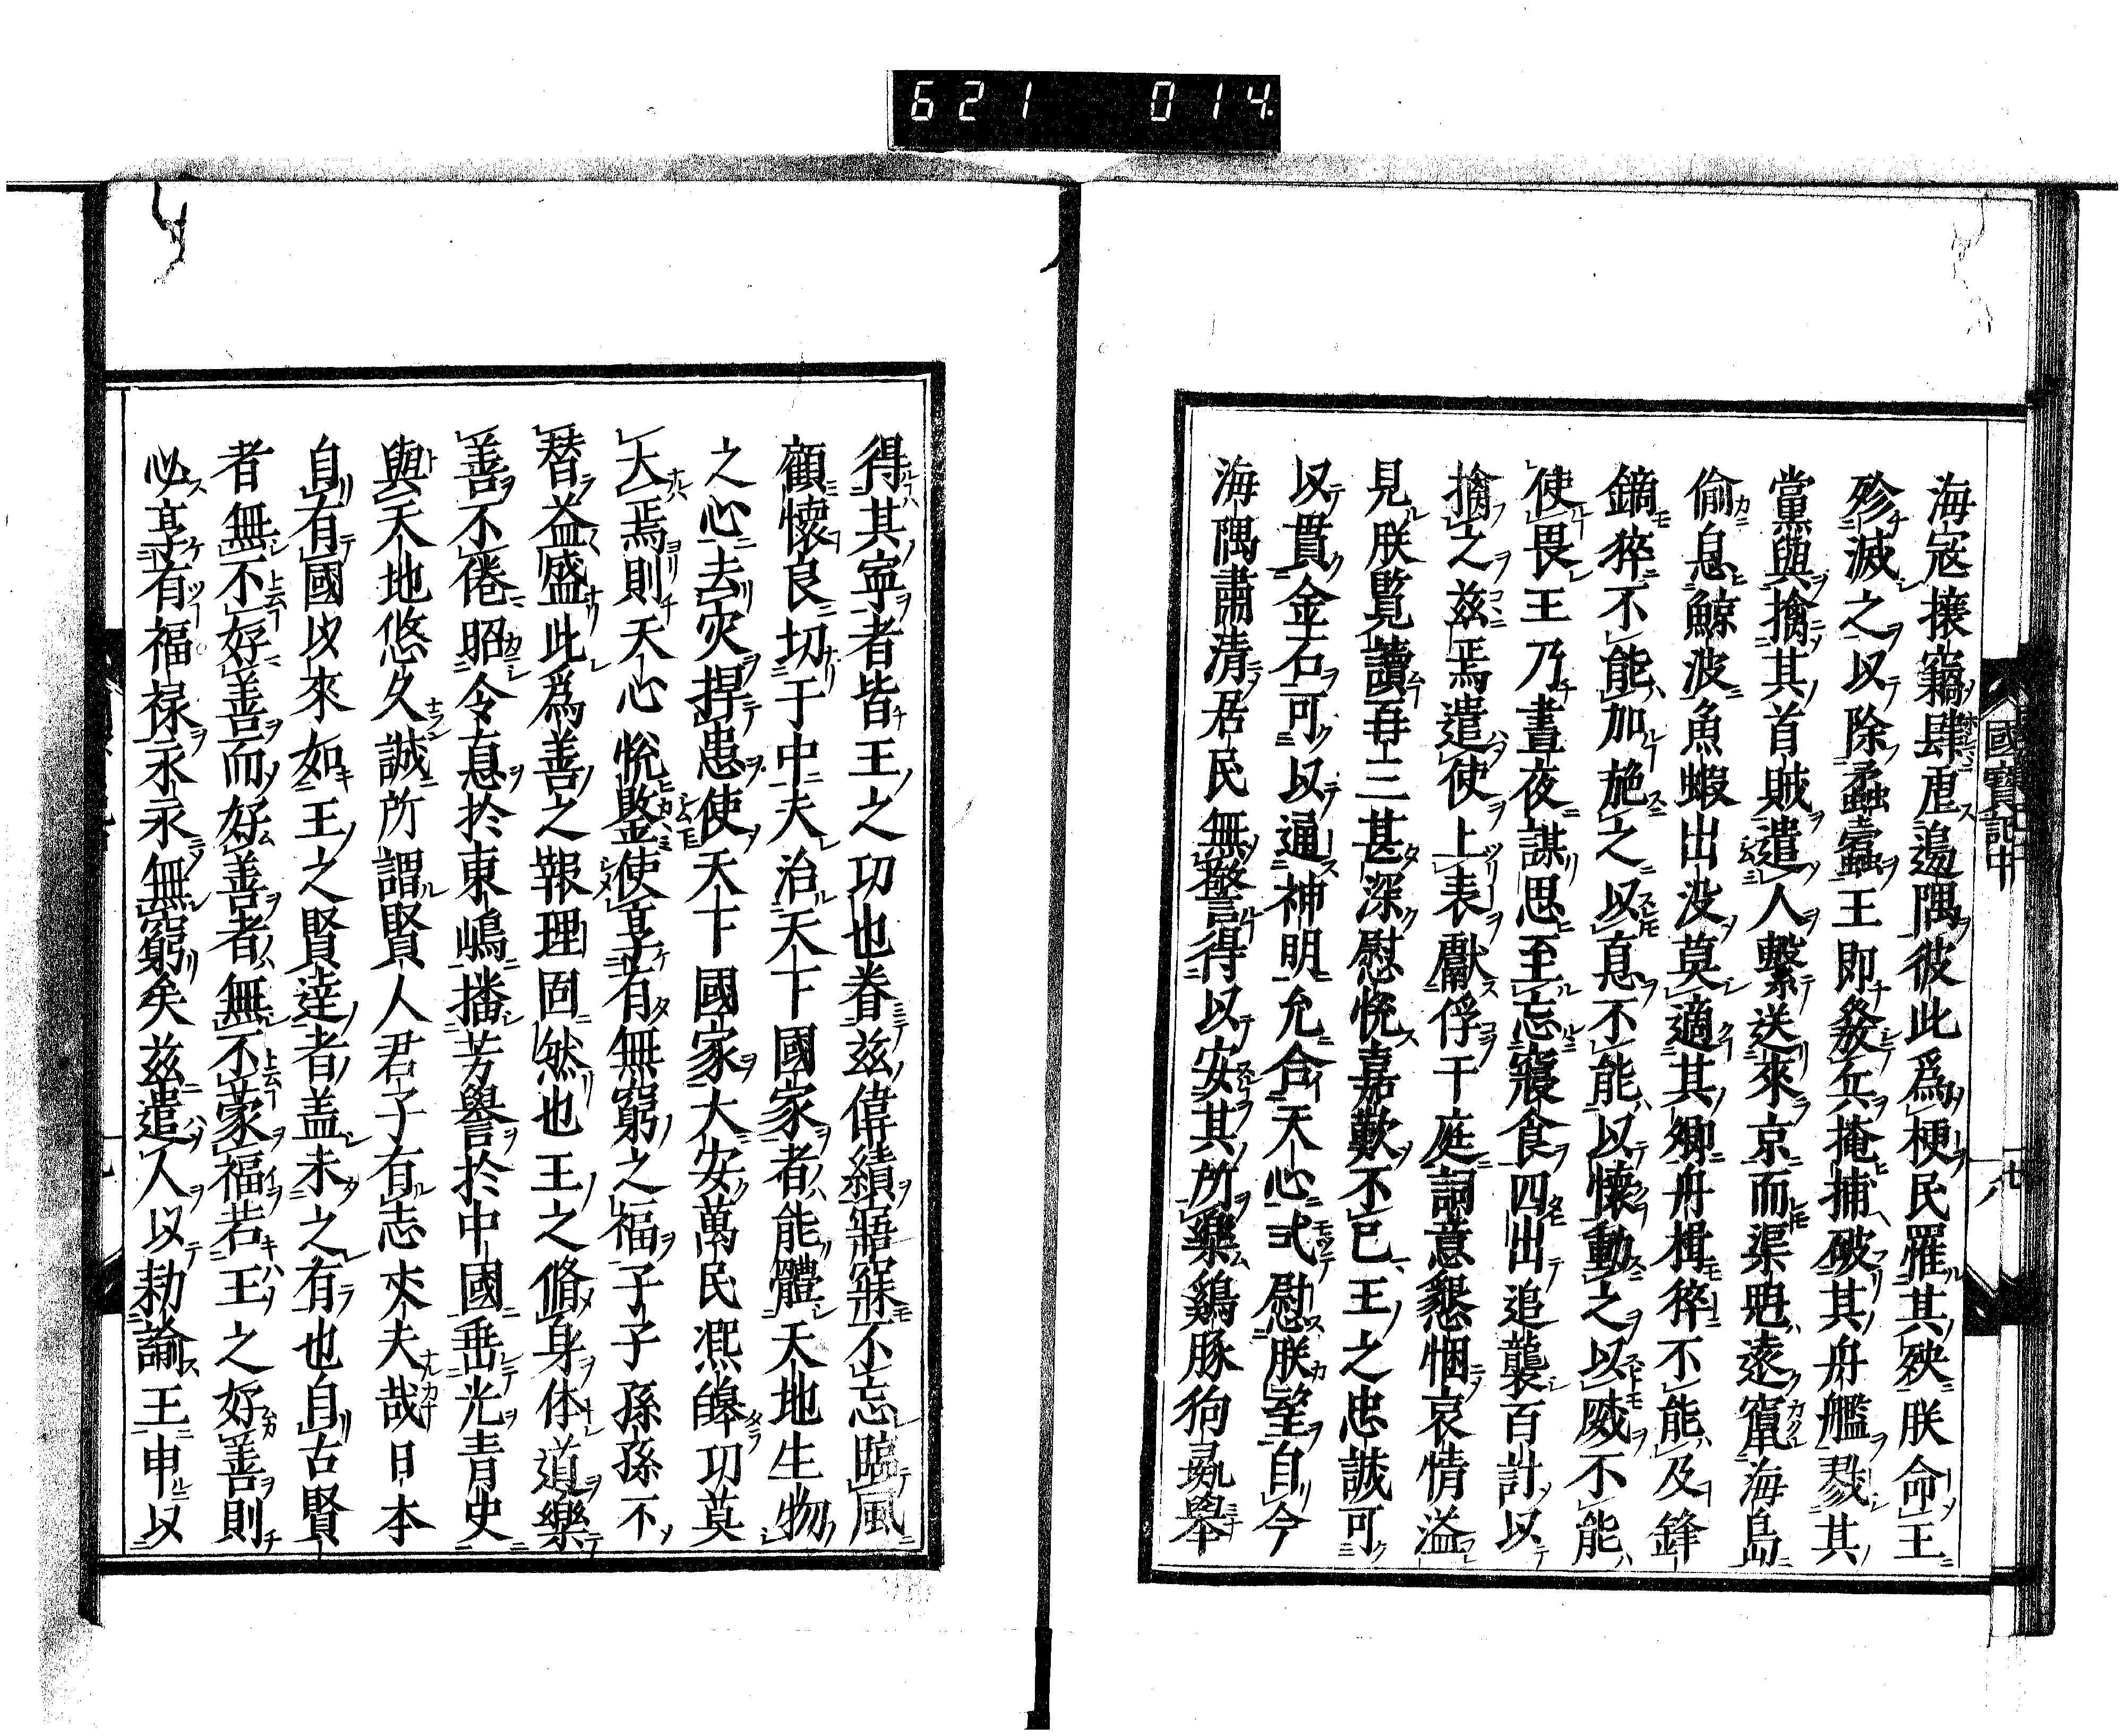 621 014.
國寶記中
海寇攘竊肆虐邊隅彼此爲梗民罹其殃朕命王
殄滅之以除蟊蠧王即發兵掩捕破其舟艦戮其
黨與擒其首賊遣人繫送來京而渠魁遠竄海島
偷息鯨波魚蝦出没莫適其鄉舟楫猝不能及鋒
鏑猝不能加施之以恵不能以懷動之以威不能
使畏王乃晝夜謀思至忘寢食四出追襲百計以
擒之兹焉遣使上表獻俘于庭詞意懇悃哀情溢
見朕覧讀再三甚深慰悅嘉歎不已王之忠誠可
以貫金石可以通神明允合天心式慰朕望自今
海隅肅清居民無警得以安其所樂鷄豚狗彘舉
得其寧者皆王之功也眷兹偉績寤寐不忘臨風
顧懷良切于中夫治天下國家者能體天地生物
之心去灾捍患使天下國家大安萬民凞皞功莫
大焉則天心悅鑒使享有無窮之福子子孫孫不
替益盛此爲善之報理固然也王之脩身体道樂
善不倦昭令息於東嶋播芳譽於中國垂光青史
與天地悠久誠所謂賢人君子有志丈夫哉日本
自有國以來如王之賢逹者盖未之有也自古賢
者無不好善而好善者無不蒙福若王之好善則
必享有福禄永永無窮矣兹遣人以勑諭王申以